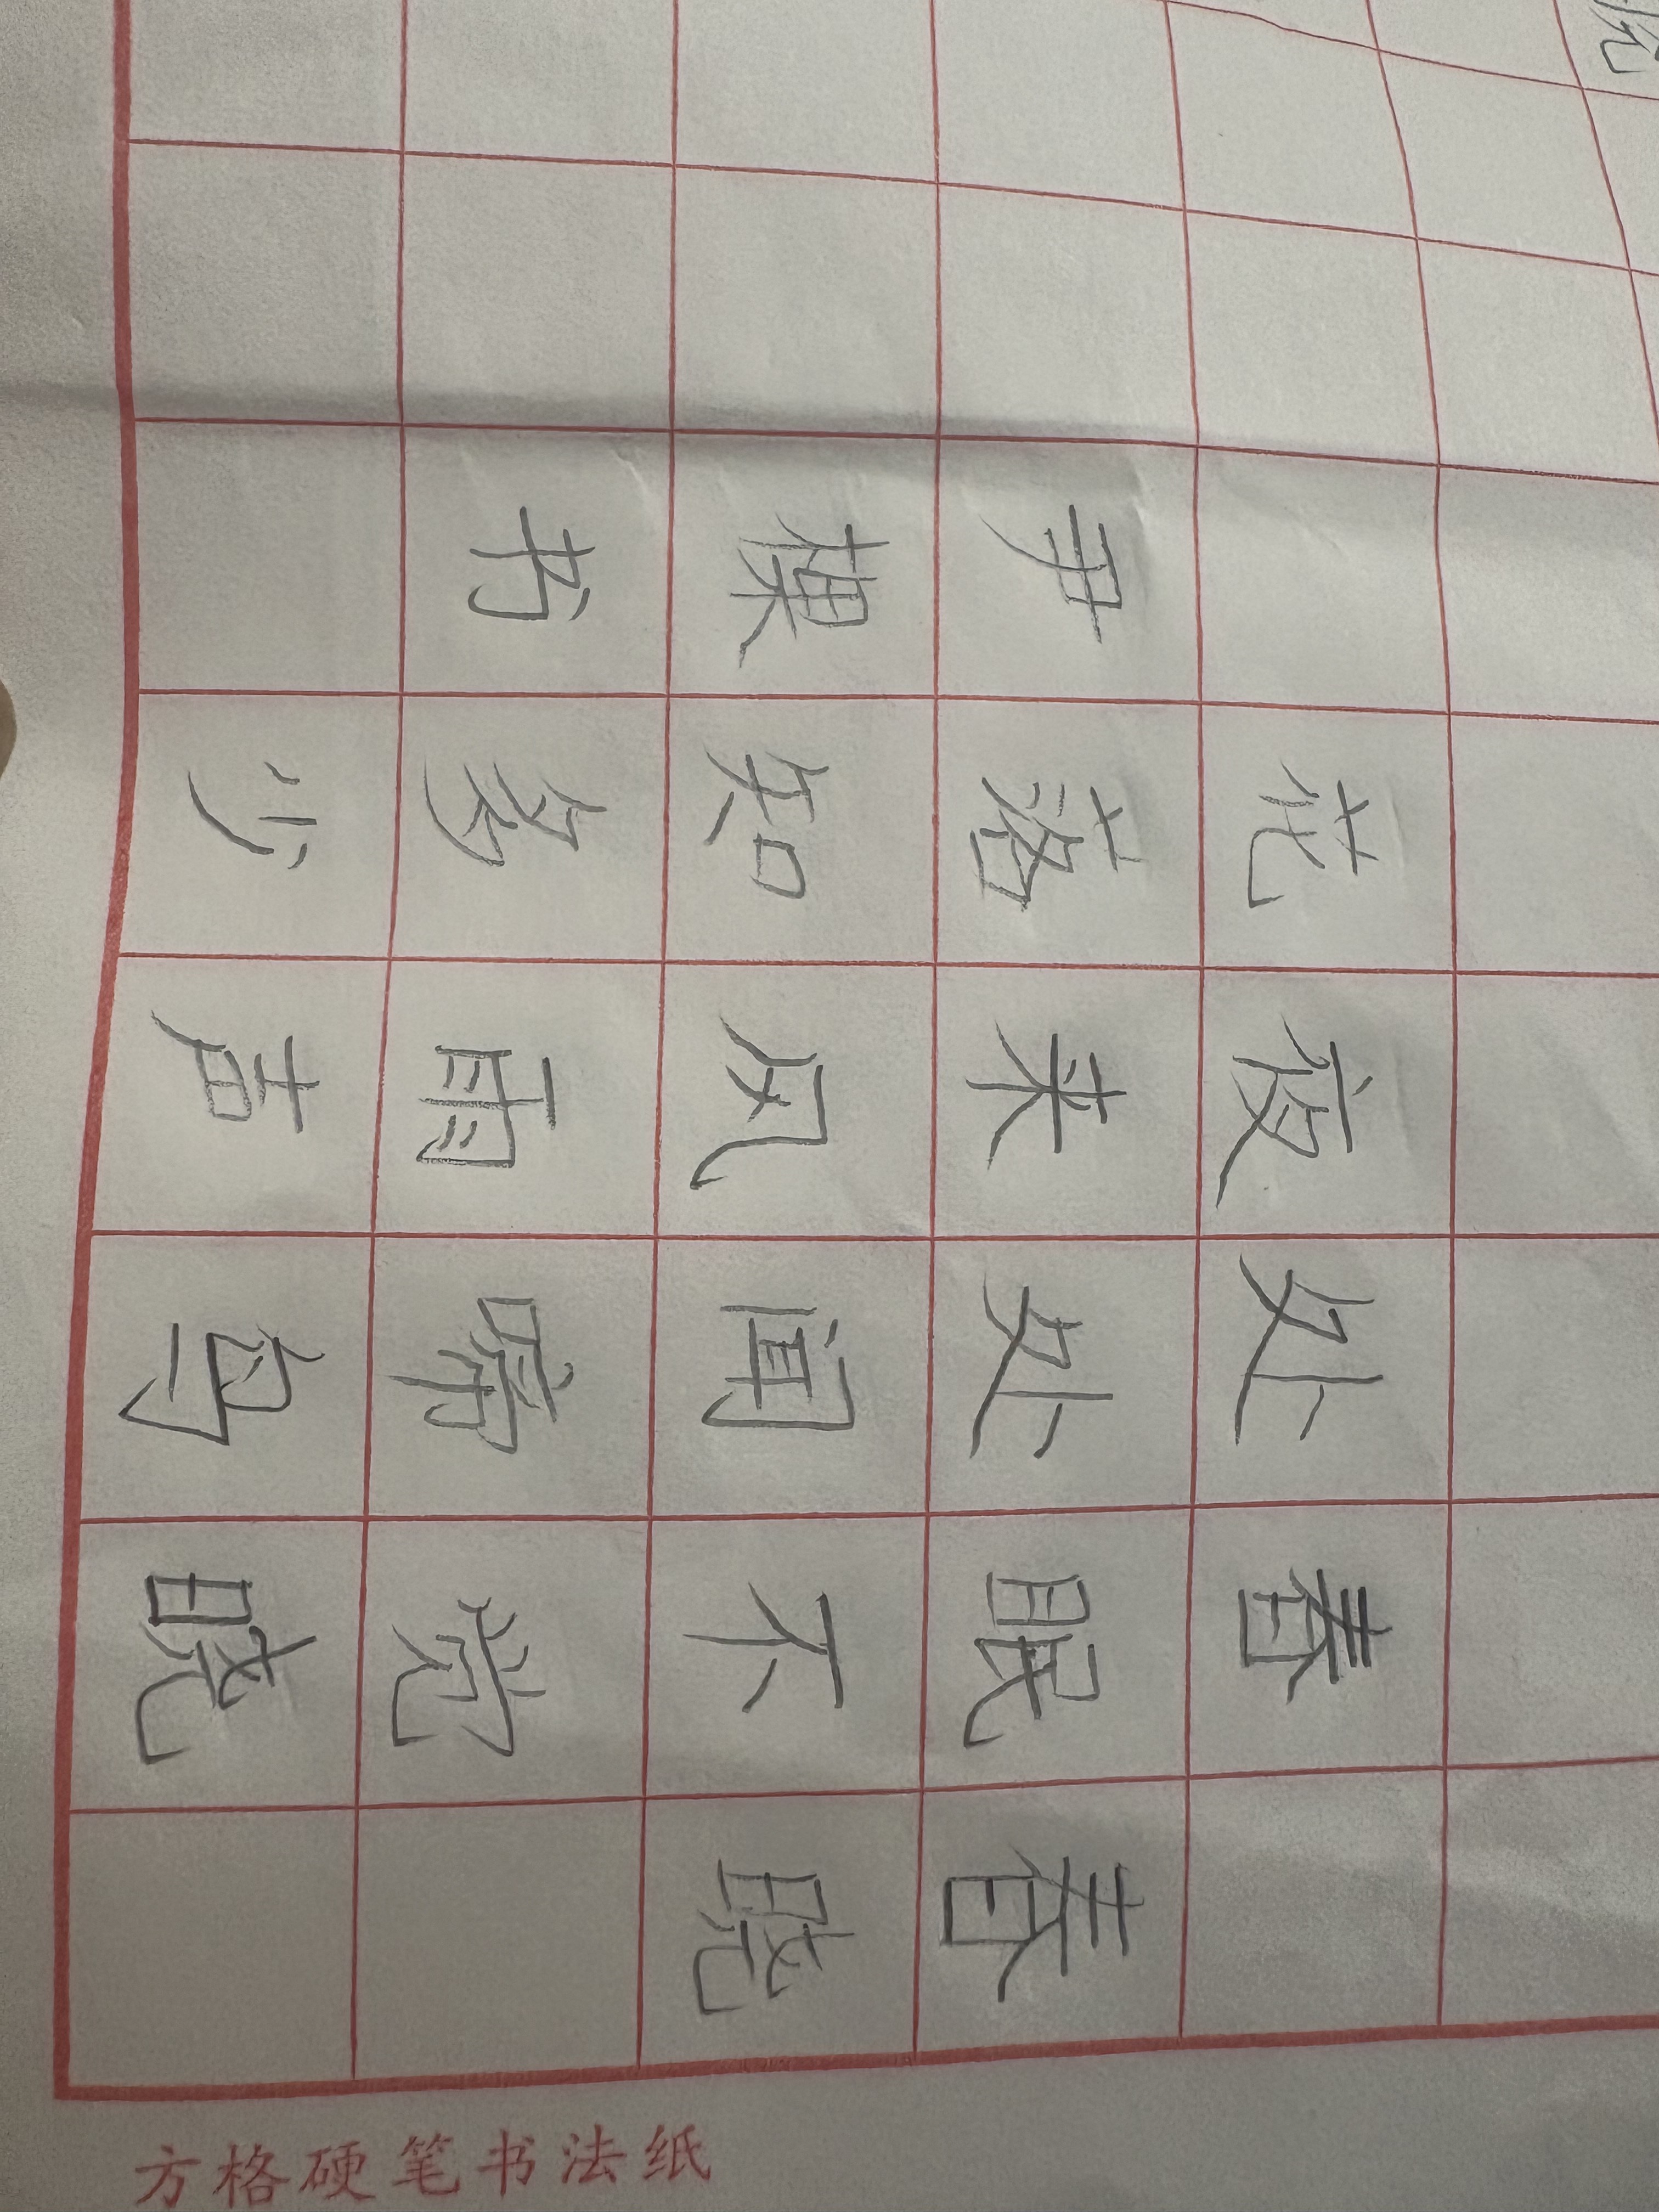 春晓
春眠不觉晓
处处闻啼鸟
夜来风雨声
花落知多少
尹书
方格硬笔书法纸